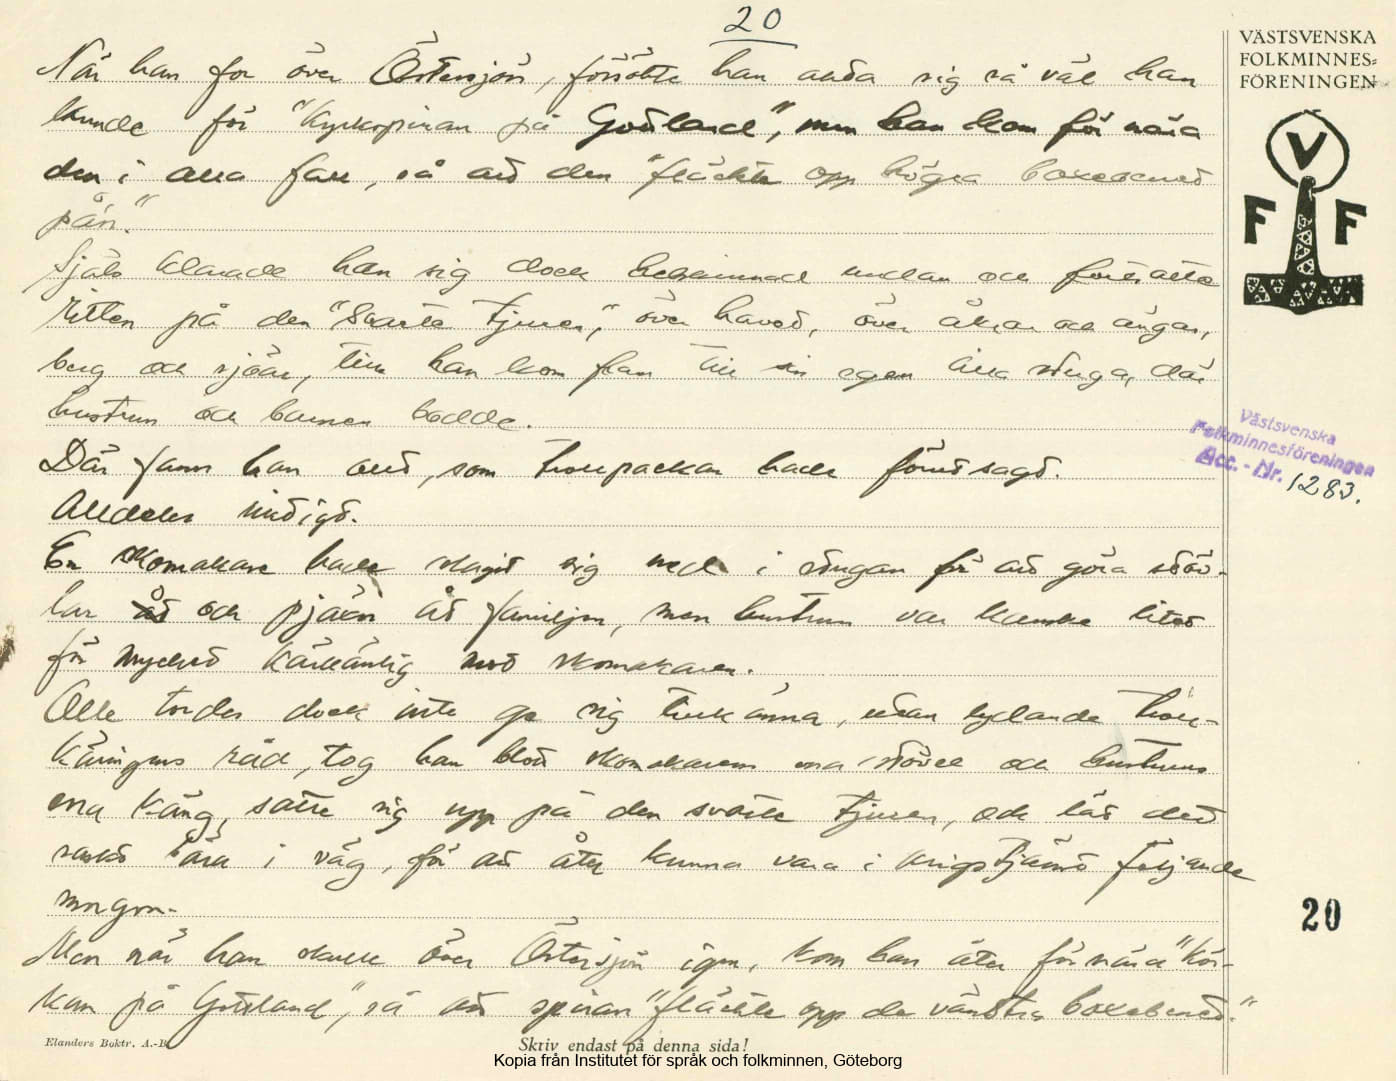 20
När han for över Östersjön, försökte han akta sig så väl han
kunde för "Kyrkspiran på Gottland", men han kom för nära
den i alla fall, så att den "fläckte opp högra boxebenet
pån."
Själv klarade han sig dock helskinnad undan och fortsatte
ritten på den "Svarte tjuren", över havet, över åkrar och ängar,
berg och sjöar, tills han kom fram till sin egen lilla stuga, där
hustrun och barnen bodde.
Där fann han allt, som trollpackan hade förutsagt.
Alldeles riktigt.
En skomakare hade slagit sig ned i stugan för att göra stöv-
lar åt och pjäxor åt familjen, men hustrun var kanske litet
för mycket kärvänlig mot skomakaren.
Olle tordes dock inte ge sig tillkänna, utan lydande troll-
käringens råd, tog han blott skomakarens ena stövel och hustruns
ena käng, satte sig upp på den svarte tjuren, och lät det
raskt bära i väg, för att åter kunna vara i krigstjänst följande
morgon.
Men när han skulle över Östersjön igen, kom han åter för nära "Kör-
kan på Gottland", så att spiran "fläckte opp de vänstra boxebenet."
Elanders Boktr. A.-B.
Skriv endast på denna sida!
Kopia från Institutet för språk och folkminnen, Göteborg
VÄSTSVENSKA
FOLKMINNES-
FÖRENINGEN
V
F F
Västsvenska
Folkminnesföreningen
Acc.-Nr. 1283.
20